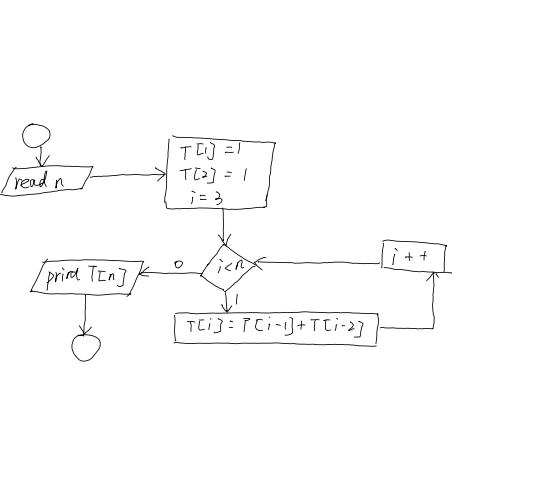 read n
T[1] = 1
T[2] = 1
i = 3
i < n
0
1
print T[n]
T[i] = T[i-1] + T[i-2]
i + +